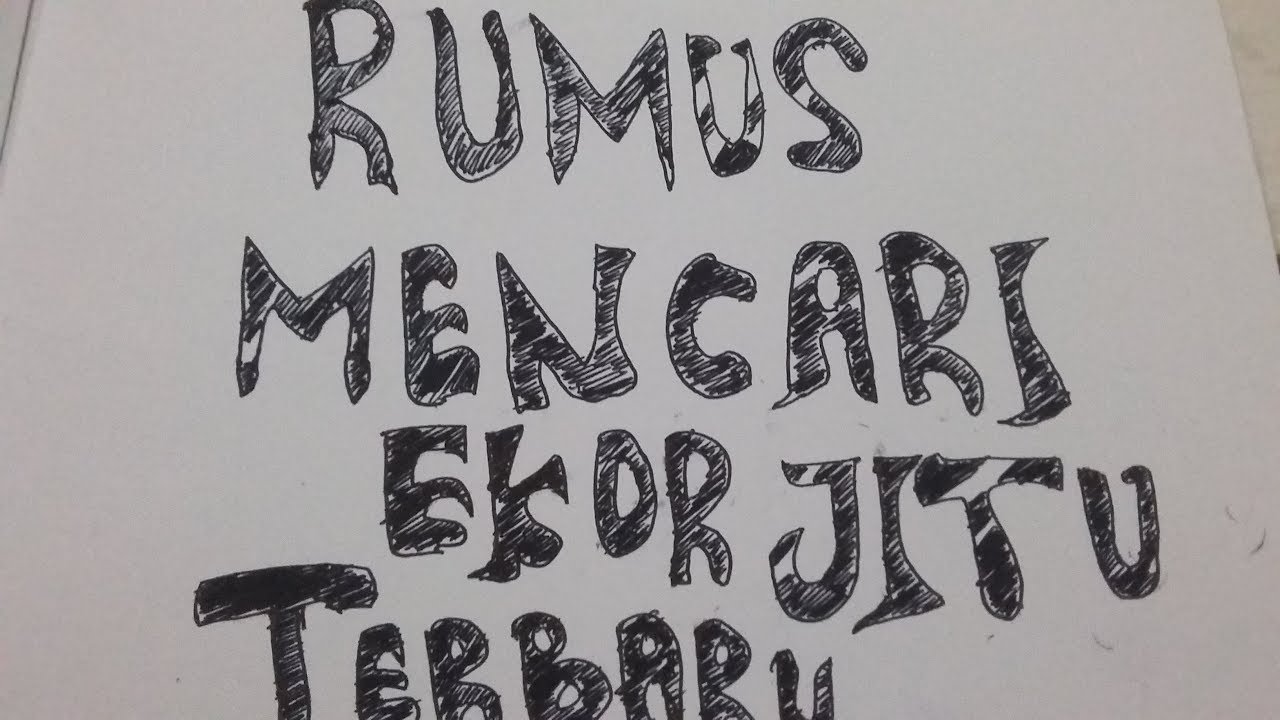 RUMUS
MENCARI
EKOR JITU
TERBARU